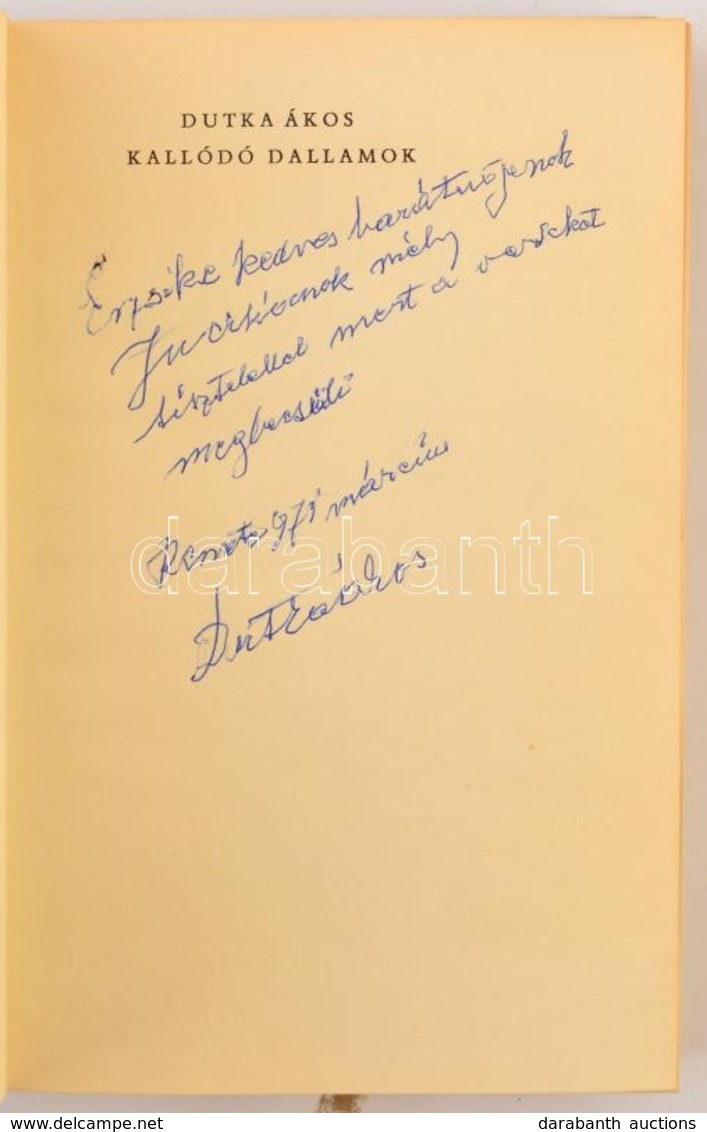 DUTKA ÁKOS
KALLÓDÓ DALLAMOK
Erzsike kedves barátnőjenek
mély
tisztelettel mert a verseket
megbecsüli
Remete 973 március
Dutka Ákos
darabanth
hu.delcampe.net
darabanth auctions